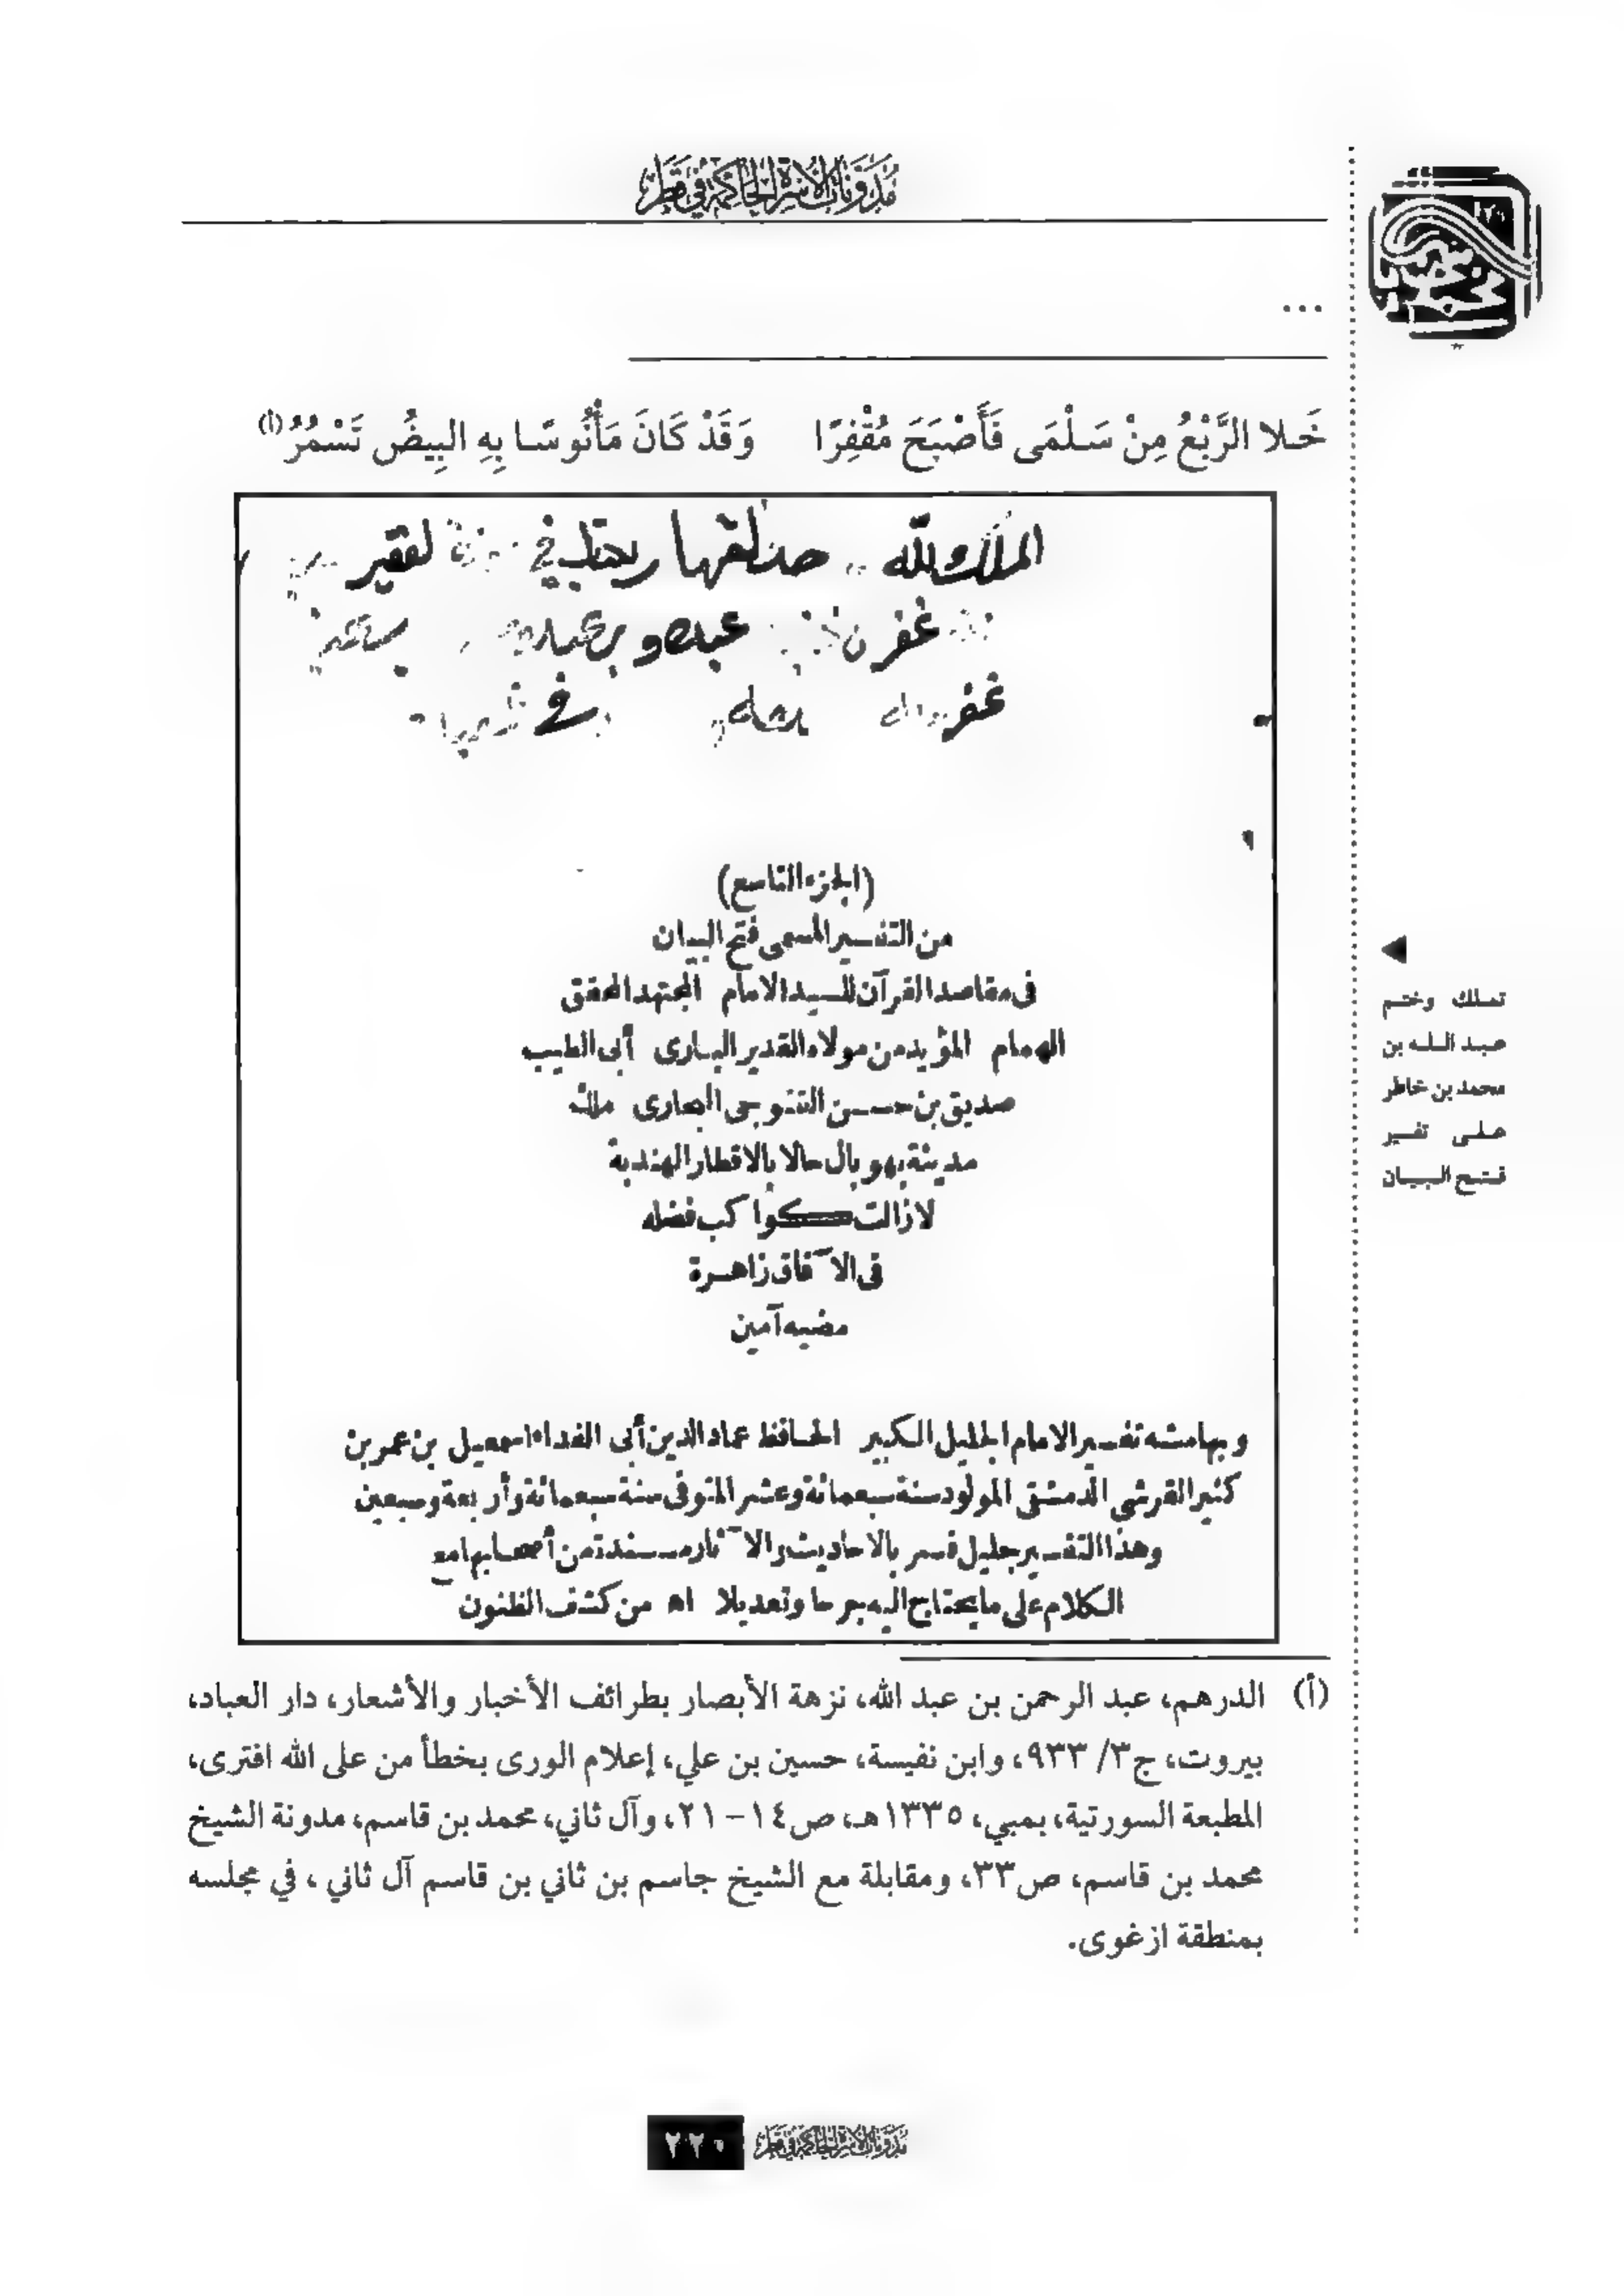 مدونات الأسرة الحاكمة في قطر
...
خَلا الرَّبْعُ مِنْ سَلْمَى فَأَصْبَحَ مُقْفِرًا وَقَدْ كَانَ مَأْنُوسًا بِهِ البِيضُ تَسْمُرُ(أ)
الملك لله
غفر
غفر في
(الجزء التاسع)
من التفسير المسمى فتح البيان
فى مقاصد القرآن للسيد الامام المجتهد المحقق
الهمام المؤيد من مولاه القدير البارى أبى الطيب
صديق بن حسن القنوجى البخارى ملك
مدينة بهوبال حالا بالاقطار الهندية
لازالت كواكب فضله
فى الآفاق زاهرة
مضيه آمين
وبهامشه تفسير الامام الجليل الكبير الحافظ عماد الدين أبى الفداء اسمعيل بن عمر بن
كثير القرشى الدمشقى المولود سنة سبعمائة وعشر المتوفى سنة سبعمائة وأربعة وسبعين
وهذا التفسير جليل فسر بالاحاديث والآثار مسندة من أصحابها مع
الكلام على ما يحتاج اليه جرحا وتعديلا اه من كشف الظنون
تملك وختم
عبد الله بن
محمد بن خاطر
على تفسير
فتح البيان
(أ) الدرهم، عبد الرحمن بن عبد الله، نزهة الأبصار بطرائف الأخبار والأشعار، دار العباد،
بيروت، ج٣/ ٩٣٣، وابن نفيسة، حسين بن علي، إعلام الورى بخطأ من على الله افترى،
المطبعة السورتية، بمبي، ١٣٣٥هـ، ص١٤ - ٢١، وآل ثاني، محمد بن قاسم، مدونة الشيخ
محمد بن قاسم، ص٣٣، ومقابلة مع الشيخ جاسم بن ثاني بن قاسم آل ثاني ، في مجلسه
بمنطقة ازغوى.
مدونات الأسرة الحاكمة في قطر ٢٢٠